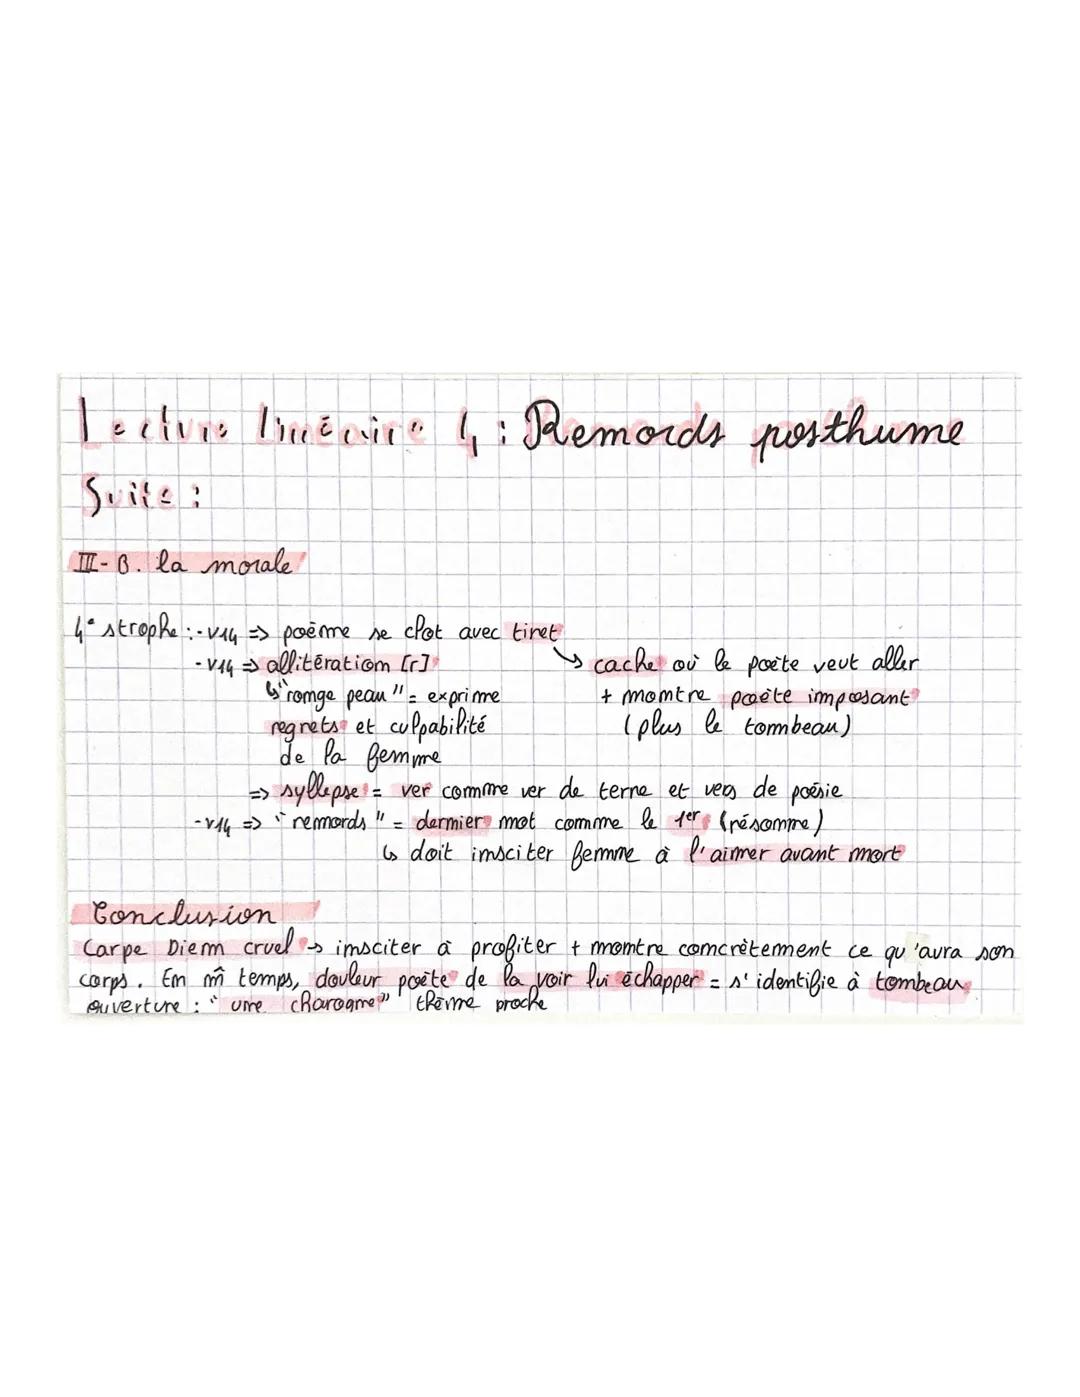 Lecture linéaire 4 : Remords posthume
Suite :
III- B. la morale
4e strophe : - v14 => poème se clot avec tiret
↳ cache où le poète veut aller
+ montre poète imposant
(plus le tombeau)
- v14 => allitération [r]
↳ "ronge peau" = exprime
regrets et culpabilité
de la femme
=> syllepse = ver comme ver de terre et vers de poésie
- v14 => "remords" = dernier mot comme le 1er (résonne)
↳ doit insciter femme à l'aimer avant mort
Conclusion
Carpe Diem cruel → insciter à profiter + montre concrètement ce qu'aura son
corps. En m̂ temps, douleur poète de la voir lui échapper = s'identifie à tombeau
ouverture : "une charogne" thème proche